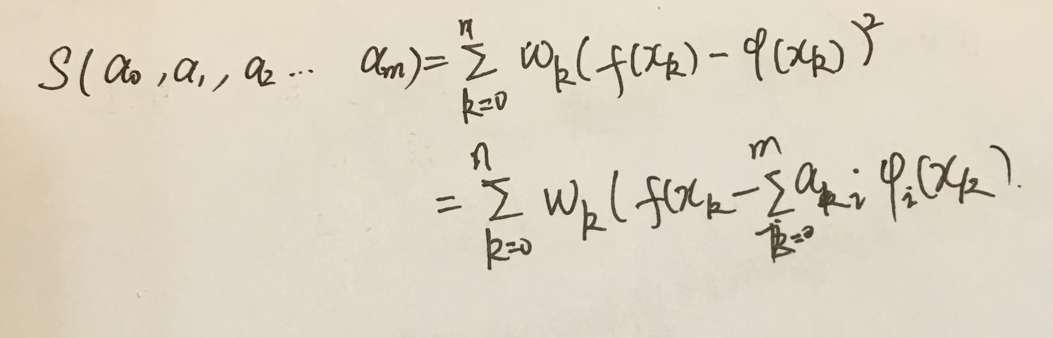 S(a₀, a₁, a₂ ... aₘ) = ∑_{k=0}^{n} w_k (f(x_k) - φ(x_k))²
= ∑_{k=0}^{n} w_k ( f(x_k - ∑_{i=0}^{m} a_i φ_i(x_k).